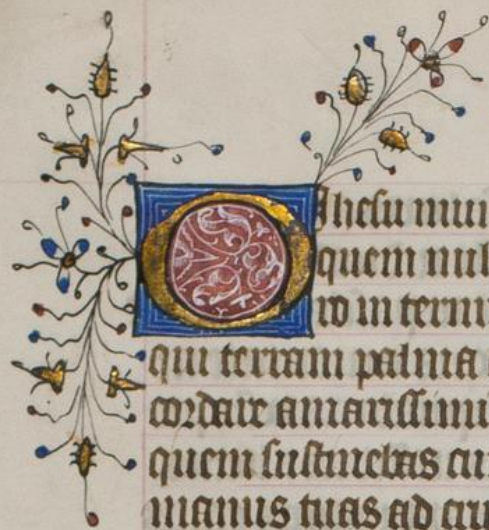 O Ihesu mun
quem nul
ro in termi
qui terram palma
cordare amarissimi
quem sustinebas cu
manus tuas ad cru